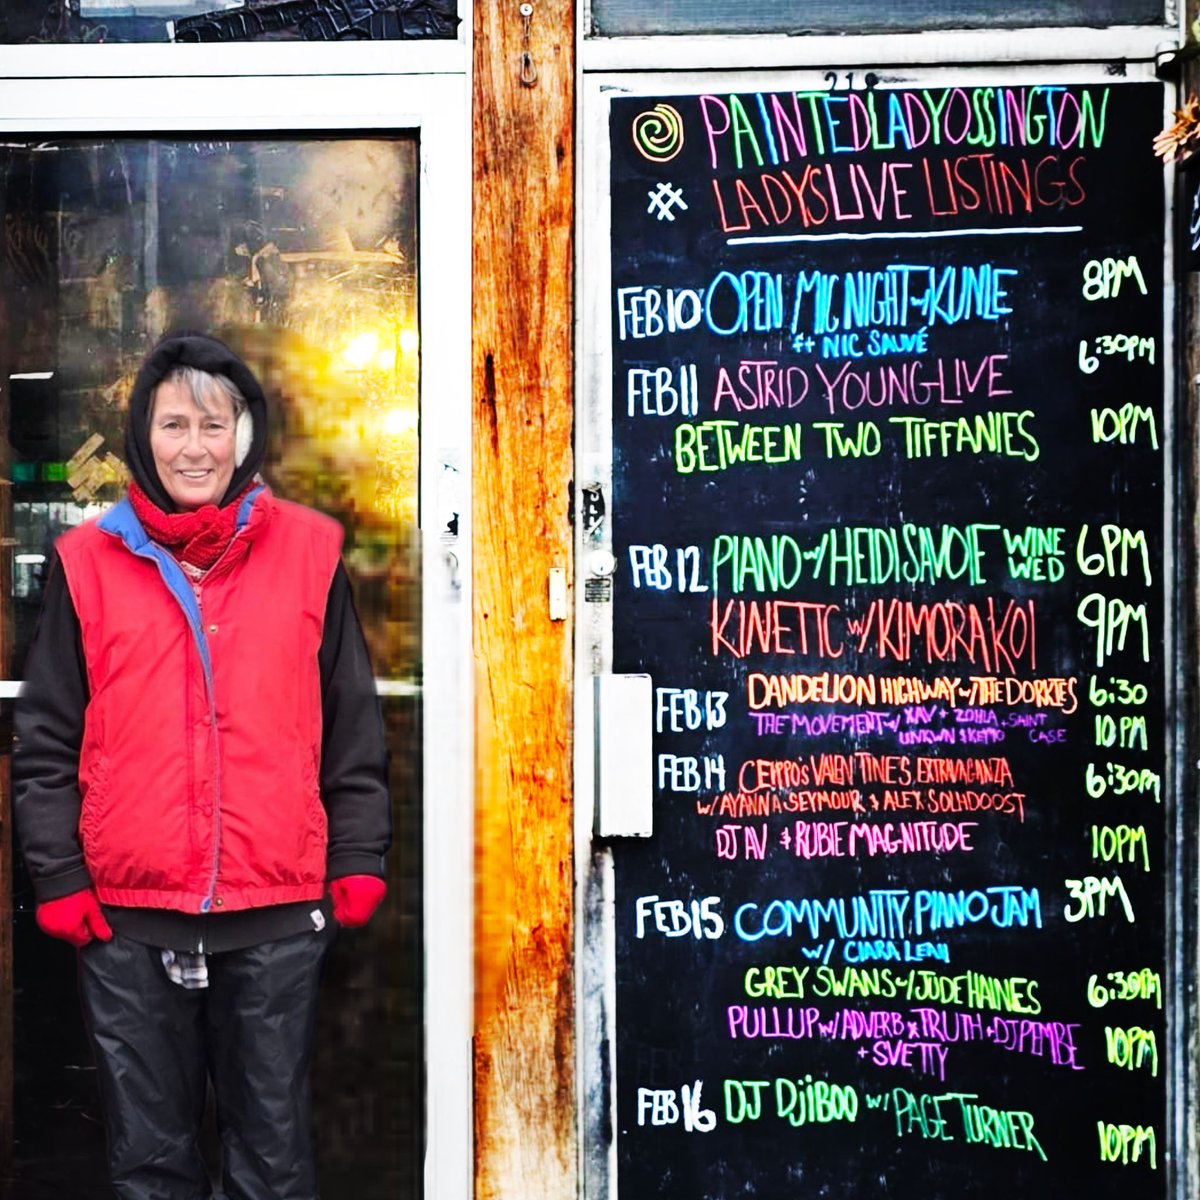 218
PAINTEDLADYOSSINGTON
# LADYSLIVE LISTINGS
FEB 10 OPEN MIC NIGHT w/ KUNLE 8PM
ft NIC SAUVÉ
FEB 11 ASTRID YOUNG-LIVE 6:30PM
BETWEEN TWO TIFFANIES 10PM
FEB 12 PIANO w/ HEIDI SAVOIE WINE WED 6PM
KINETIC w/ KIMORA KOI 9PM
FEB 13 DANDELION HIGHWAY w/ THE DORKIES 6:30
THE MOVEMENT w/ XAV + ZOHLA + SAINT 10PM
UNKWN $ KEMO CASE
FEB 14 CEIPPO'S VALENTINES EXTRAVAGANZA 6:30PM
w/ AYANNA SEYMOUR & ALEX SOLHDOOST
DJ AV & RUBIE MAGNITUDE 10PM
FEB 15 COMMUNITY PIANO JAM 3PM
w/ CIARA LEAH
GREY SWANS w/ JUDE HAINES 6:30PM
PULLUP w/ ADVERB x TRUTH + DJ PEMBE 10PM
+ SVETTY
FEB 16 DJ DJiiBOO w/ PAGE TURNER 10PM